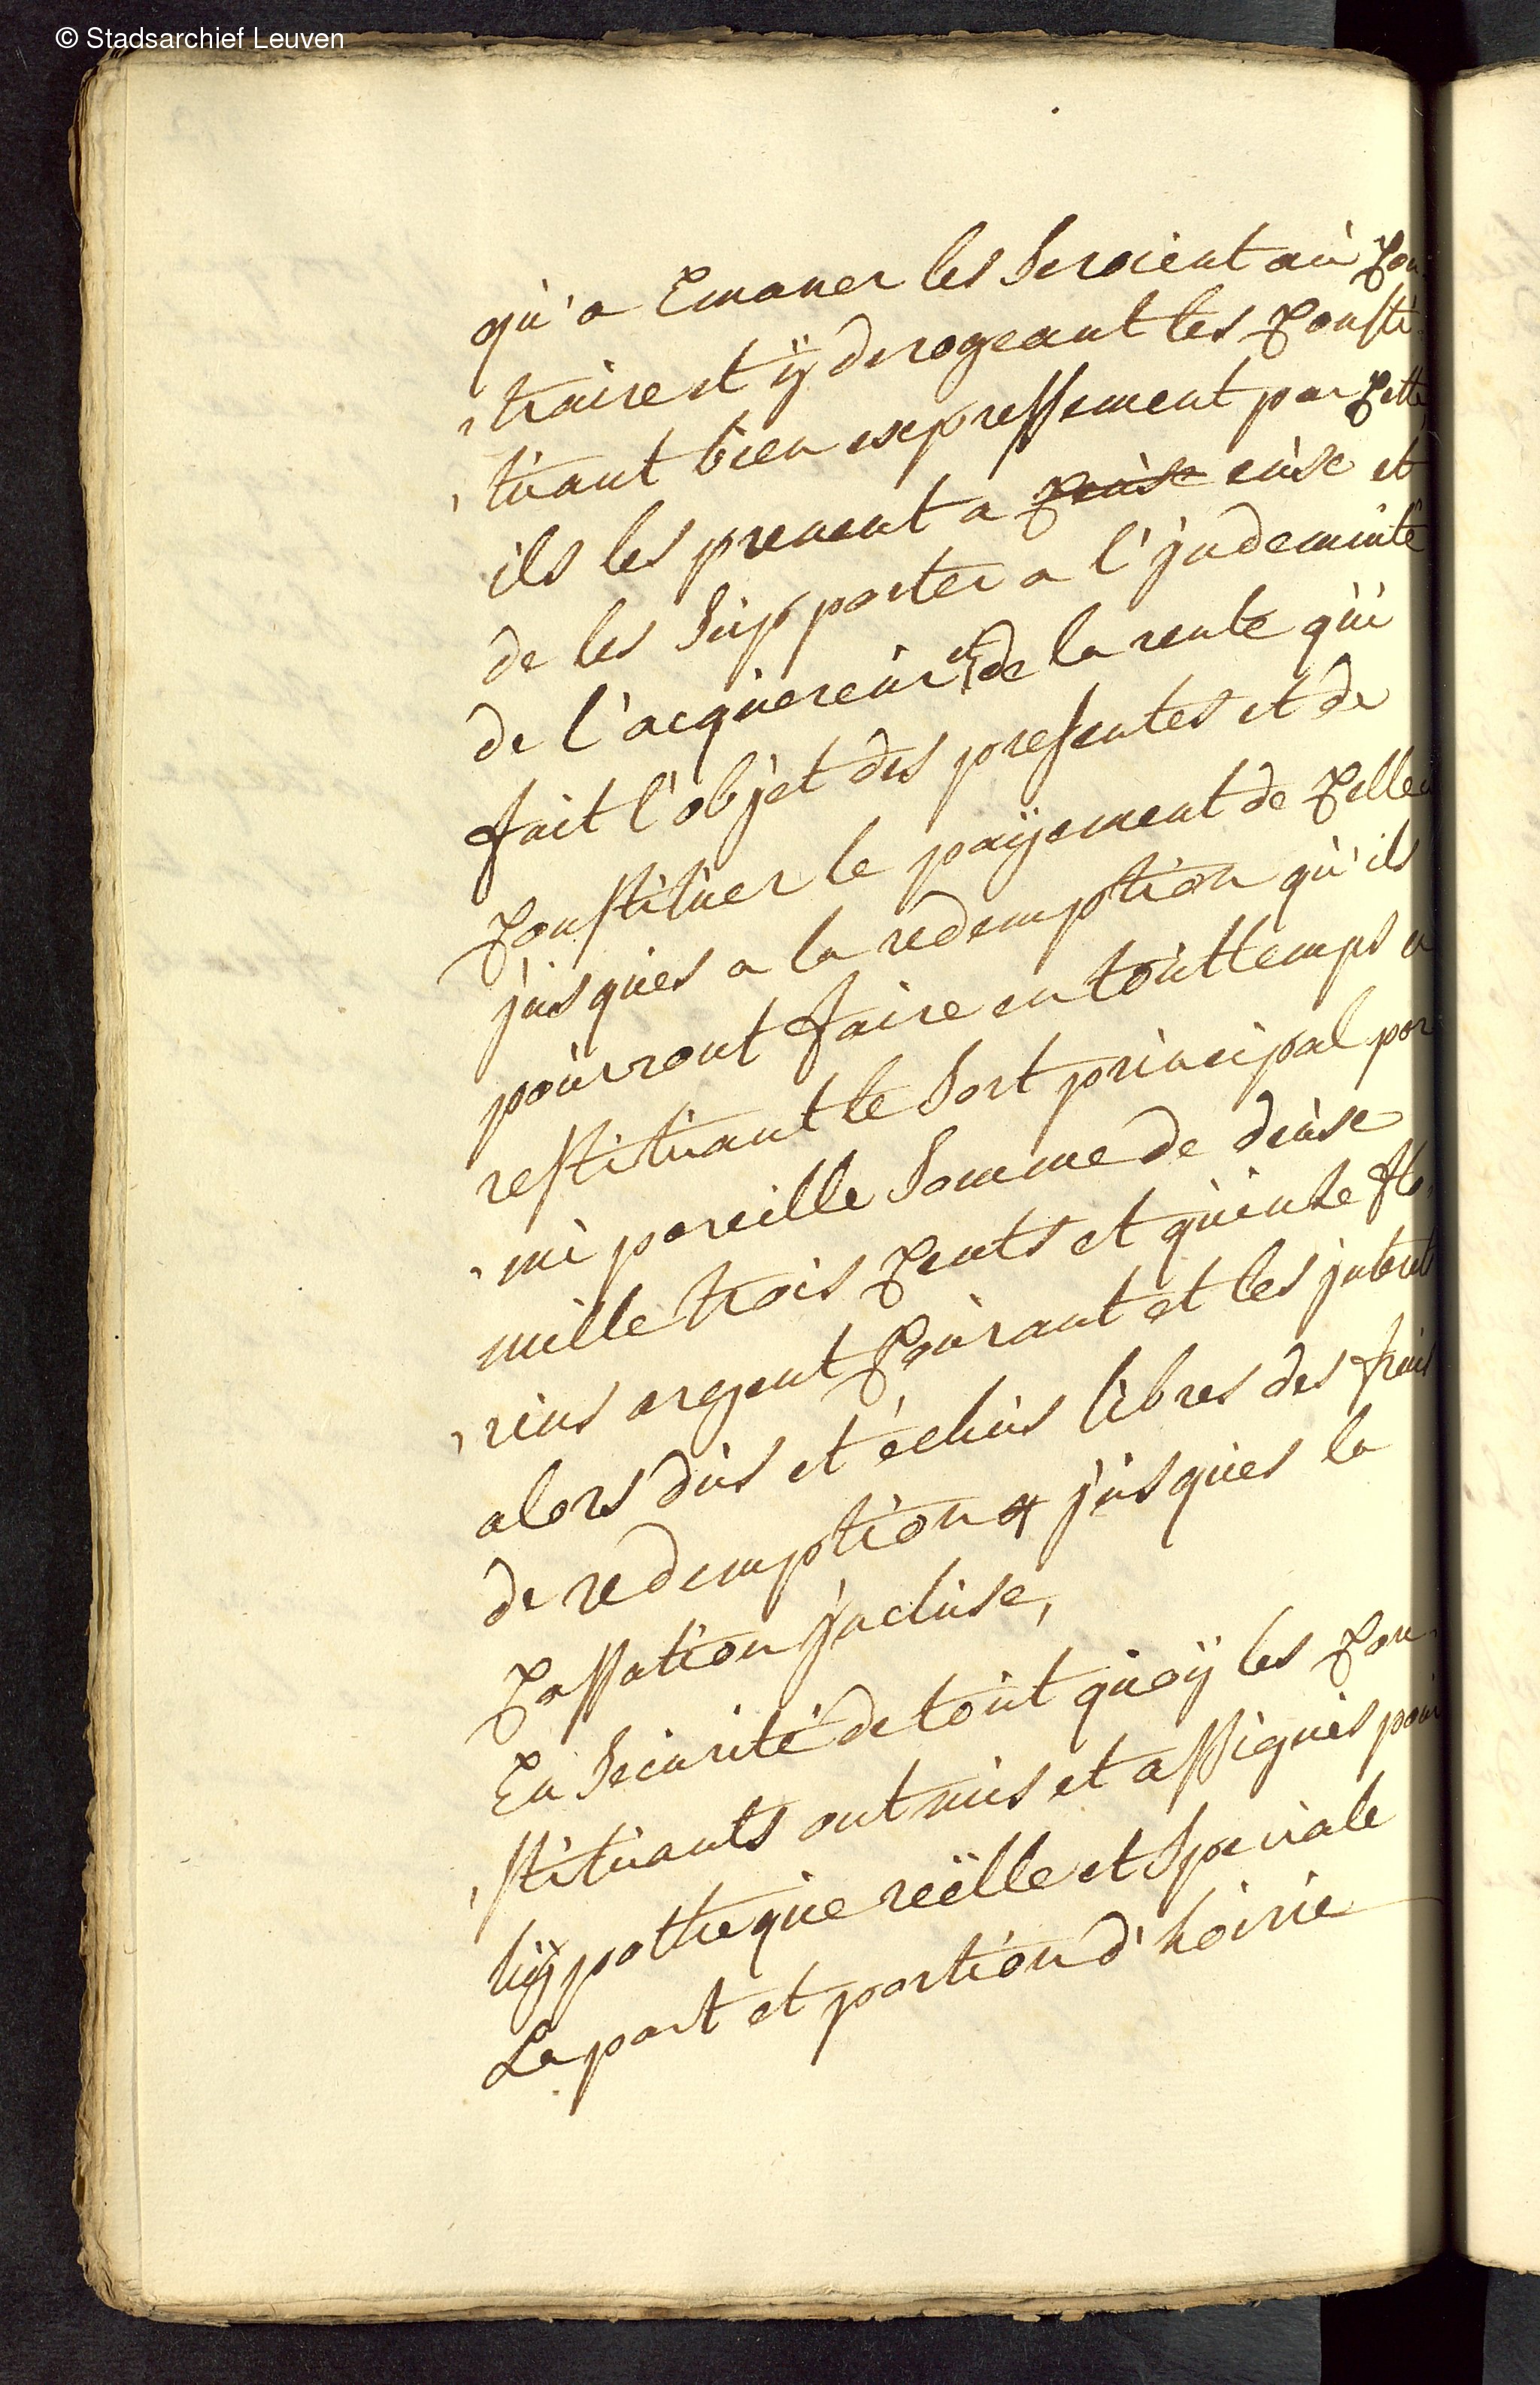 © Stadsarchief Leuven
qu'a Emaner les seroient au Con
traire et ÿ derogeant les Consti
tuant bien expressement par Cette
ils les prenent a ceuse euse et
de les supporter a l'jndemnité
de l'acquereur et de la rente qui
fait l'objet des presentes et de
Constituer le paÿement de Celle
jusques a la redemption qu'ils
pourront faire en touttemps
restituant le sort principal par
mi pareille somme de deuse
mille trois Cents et quinse flo
rins argent Courant et les jnterets
alors dus et échus libres des frais
de redemption jusques la
Cassation jncluse,
En securité de tout quoÿ les Con
stituants ont mis et assignés pour
hÿpotheque reëlle et speciale
La part et portion d'hoirie